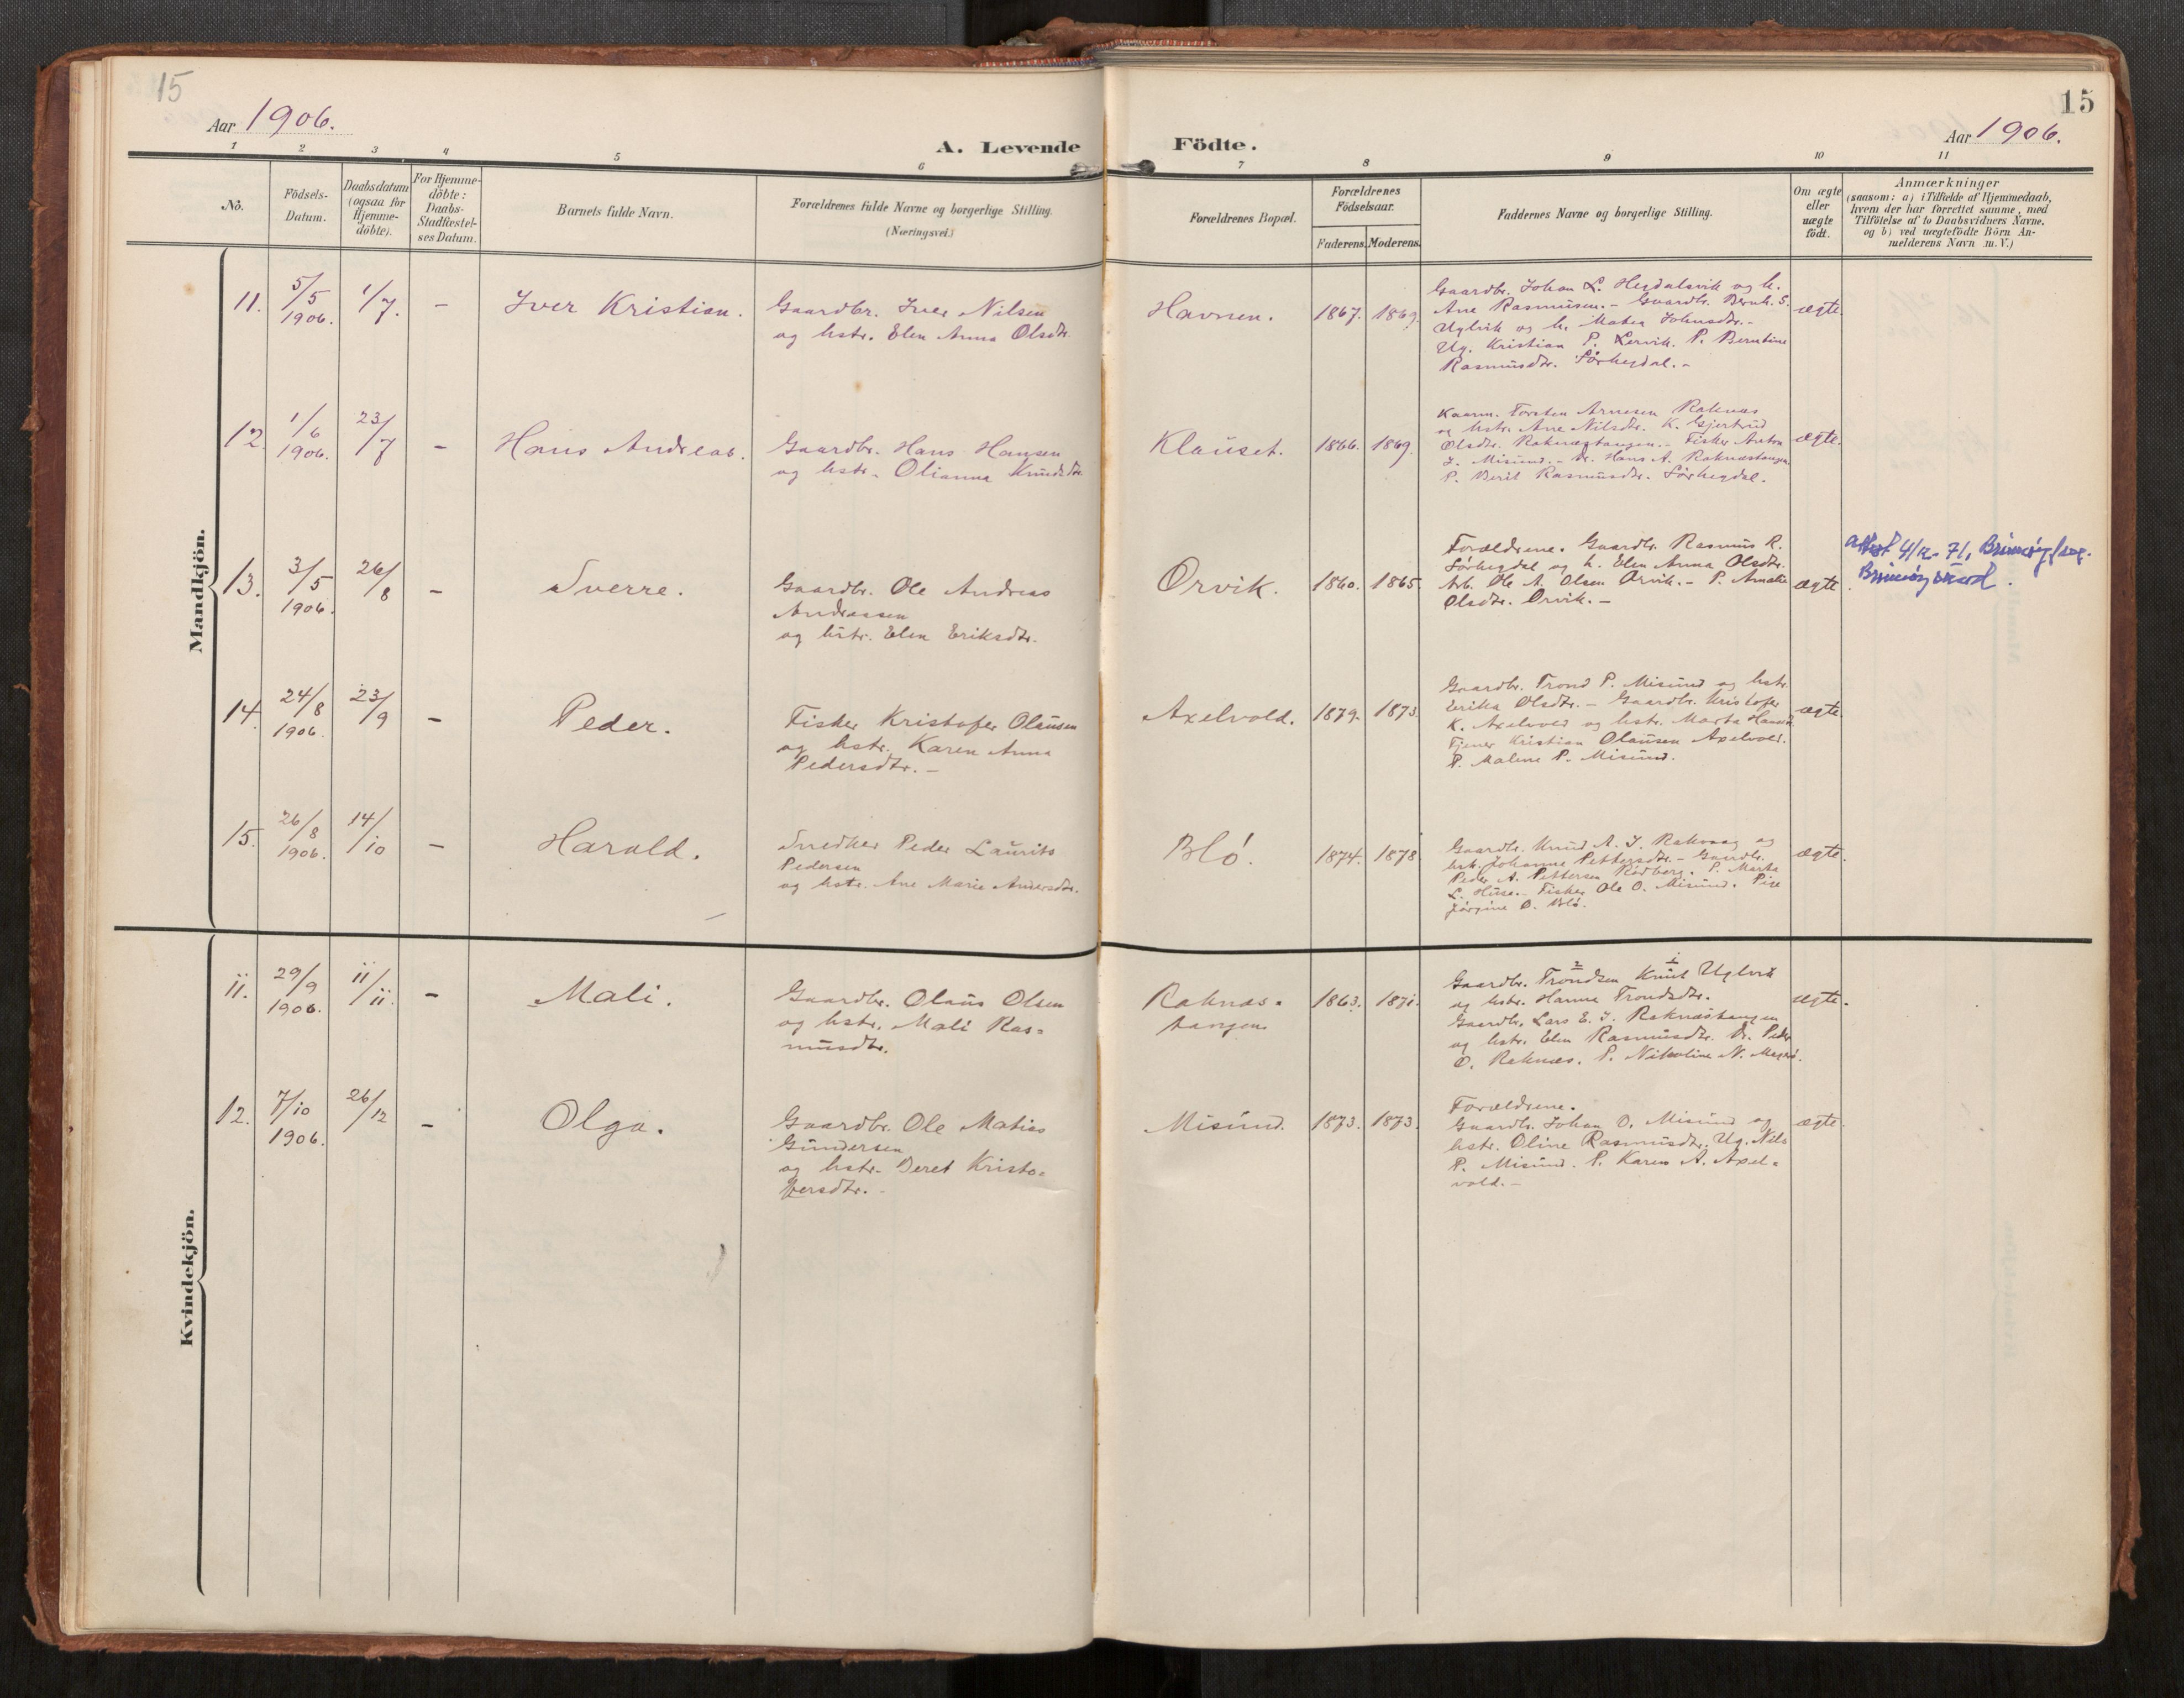 15
Aar 1906.
A. Levende
1 2 3 4 5 6
Nō.
Födsels-
Datum.
Daabsdatum
(ogsaa for
Hjemme-
döbte).
For Hjemme-
döbte:
Daabs-
Stadfæstel-
ses Datum.
Barnets fulde Navn.
Forældrenes fulde Navne og borgerlige Stilling.
(Næringsvei.)
15
Aar 1906.
Födte.
7 8 9 10 11
Forældrenes Bopæl.
Forældrenes
Födselsaar.
Faderens. Moderens.
Faddernes Navne og borgerlige Stilling.
Om ægte
eller
uægte
födt.
Anmærkninger
(saasom: a) i Tilfælde af Hjemmedaab,
hvem der har forrettet samme, med
Tilföielse af to Daabsvidners Navne,
og b) ved uægtefödte Börn An-
melderens Navn m. V.)
Mandkjön.
11. 5/5 1906. 1/7. - Iver Kristian.
Gaardbr. Iver Nilsen
og hstr. Elen Anna Olsdtr.
Havnen. 1867. 1869.
Gaardbr. Johan L. Hegdalsvik og h.
Ane Rasmusen. - Gaardbr. Bernh. S.
Uglvik og h. Matea Johnsdtr. -
Ug. Kristian P. Lervik. P. Berntine
Rasmusdtr. Sörhegdal. -
ægte.
12. 1/6 1906. 23/7 - Hans Andreas.
Gaardbr. Hans Hansen
og hstr. Olianna Knudsdtr.
Klauset. 1866. 1869.
Kaarm. Torsten Arnesen Raknæs
og hstr. Ane Nilsdtr. K. Gjertrud
Olsdtr. Raknæstangen. - Fisker Anton
J. Misund. - Dr. Hans A. Raknæstangen.
P. Berit Rasmusdtr. Sörhegdal.
ægte.
13. 3/5 1906. 26/8 - Sverre.
Gaardbr. Ole Andreas
Andreassen
og hstr. Elen Eriksdtr.
Orvik. 1860. 1865.
Forældrene. Gaardbr. Rasmus R.
Sörhegdal og h. Elen Anna Olsdtr.
Arb. Ole A. Olsen Orvik. - P. Amalie
Olsdtr. Orvik. -
ægte.
attest 4/12-71,
14. 24/8 1906. 23/9 - Peder.
Fisker Kristofer Olausen
og hstr. Karen Anna
Pedersdtr. -
Axelvold. 1879. 1873.
Gaardbr. Trond P. Misund og hstr.
Erika Olsdtr. - Gaardbr. Kristofer
K. Axelvold og hstr. Marta Hansd.
Tjener Kristian Olausen Axelvold.
P. Malene P. Misund.
ægte.
15. 26/8 1906. 14/10 - Harald.
Snedker Peder Laurits
Pedersen
og hstr. Ane Marie Andersdtr.
Blö. 1874. 1878
Gaardbr. Knud A. J. Rakvaag og
hstr. Johanne Pettersdtr. - Gaardbr.
Peder A. Pettersen Rödberg. P. Marta
L. Huse. - Fisker Ole O. Misund. Pige
Jörgine O. Blö.
ægte.
Kvindekjön.
11. 29/9 1906. 11/11. - Mali.
Gaardbr. Olaus Olsen
og hstr. Mali Ras=
musdtr.
Raknæs=
tangen 1863. 1871.
Gaardbr. Trondsen Knut Uglvik
og hstr. Hanna Trondsdtr.
Gaardbr. Lars E. J. Raknæstangen
og hstr. Elen Rasmusdtr. Dr. Peder
O. Raknæs. P. Nikoline N. Magerö.
ægte.
12. 7/10 1906. 26/12 - Olga.
Gaardbr. Ole Matias
Gundersen
og hstr. Beret Kristo=
fersdtr. -
Misund. 1873. 1873.
Forældrene.
Gaardbr. Johan O. Misund og
hstr. Oline Rasmusdtr. Ug. Nils
P. Misund. P. Karen A. Axel=
vold. -
ægte.